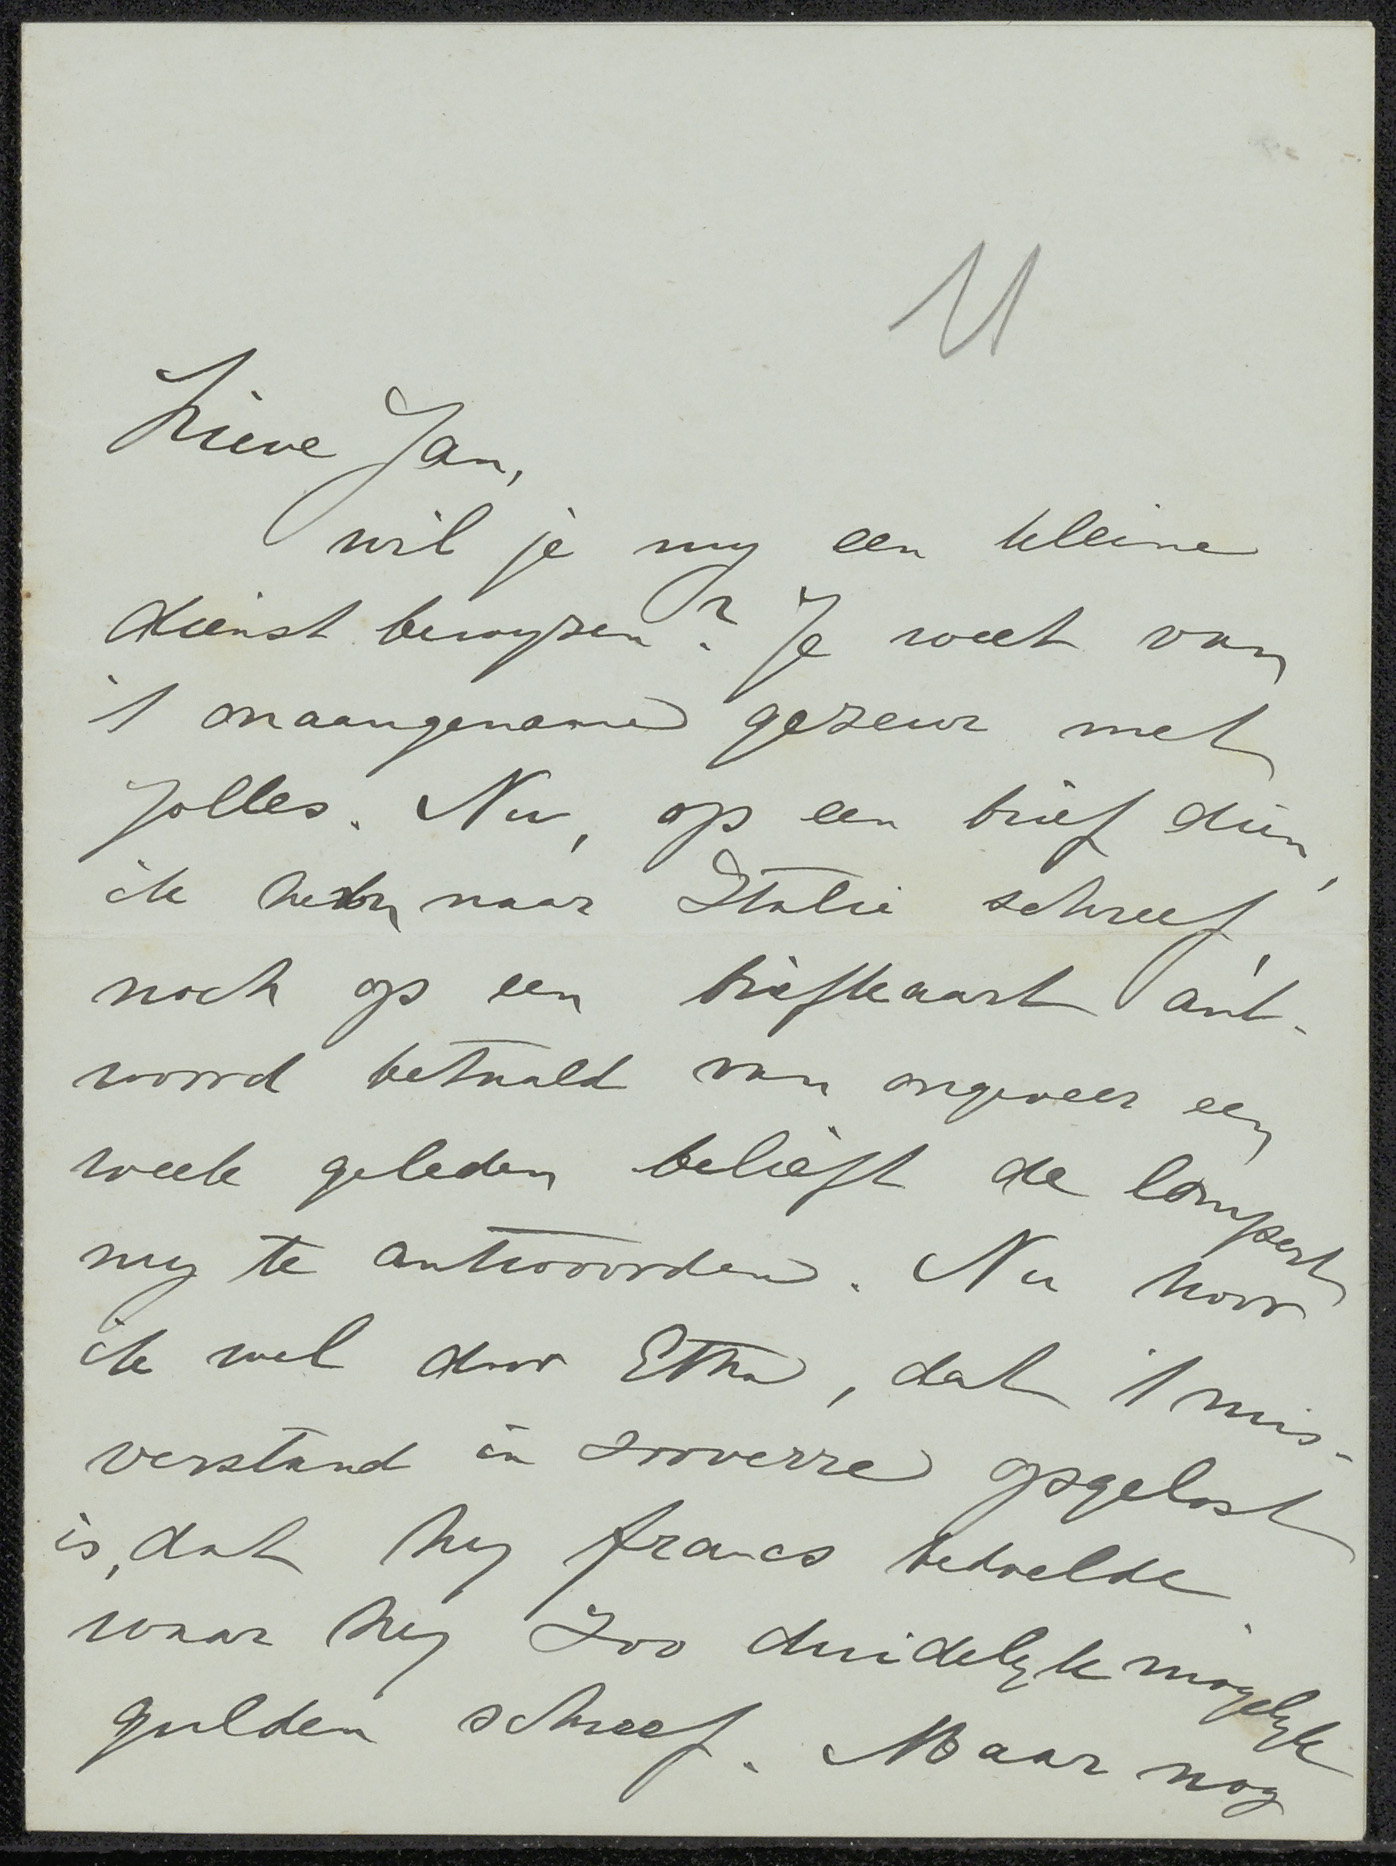 11
Lieve Jan,
wil je my een kleine
dienst bewyzen? Je weet van
't onaangename gezeur met
Jolles. Nu, op een brief dien
ik hem naar Italie schreef,
noch op een briefkaart ant-
woord betaald van ongeveer een
week geleden belieft de lompert
my te antwoorden. Nu hoor
ik wel door Etha, dat 't mis-
verstand in zooverre opgelost
is, dat hy francs bedoelde
waar hy zoo duidelyk mogelyk
gulden schreef. Maar nog